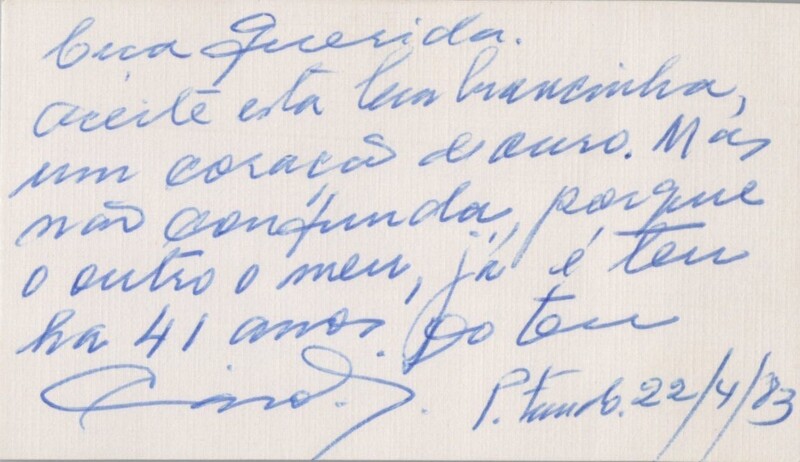 Querida.
aceite esta lembrancinha,
um coração de ouro. Mas
não confunda, porque
o outro o meu, já é teu
ha 41 anos. Do teu
22/4/83